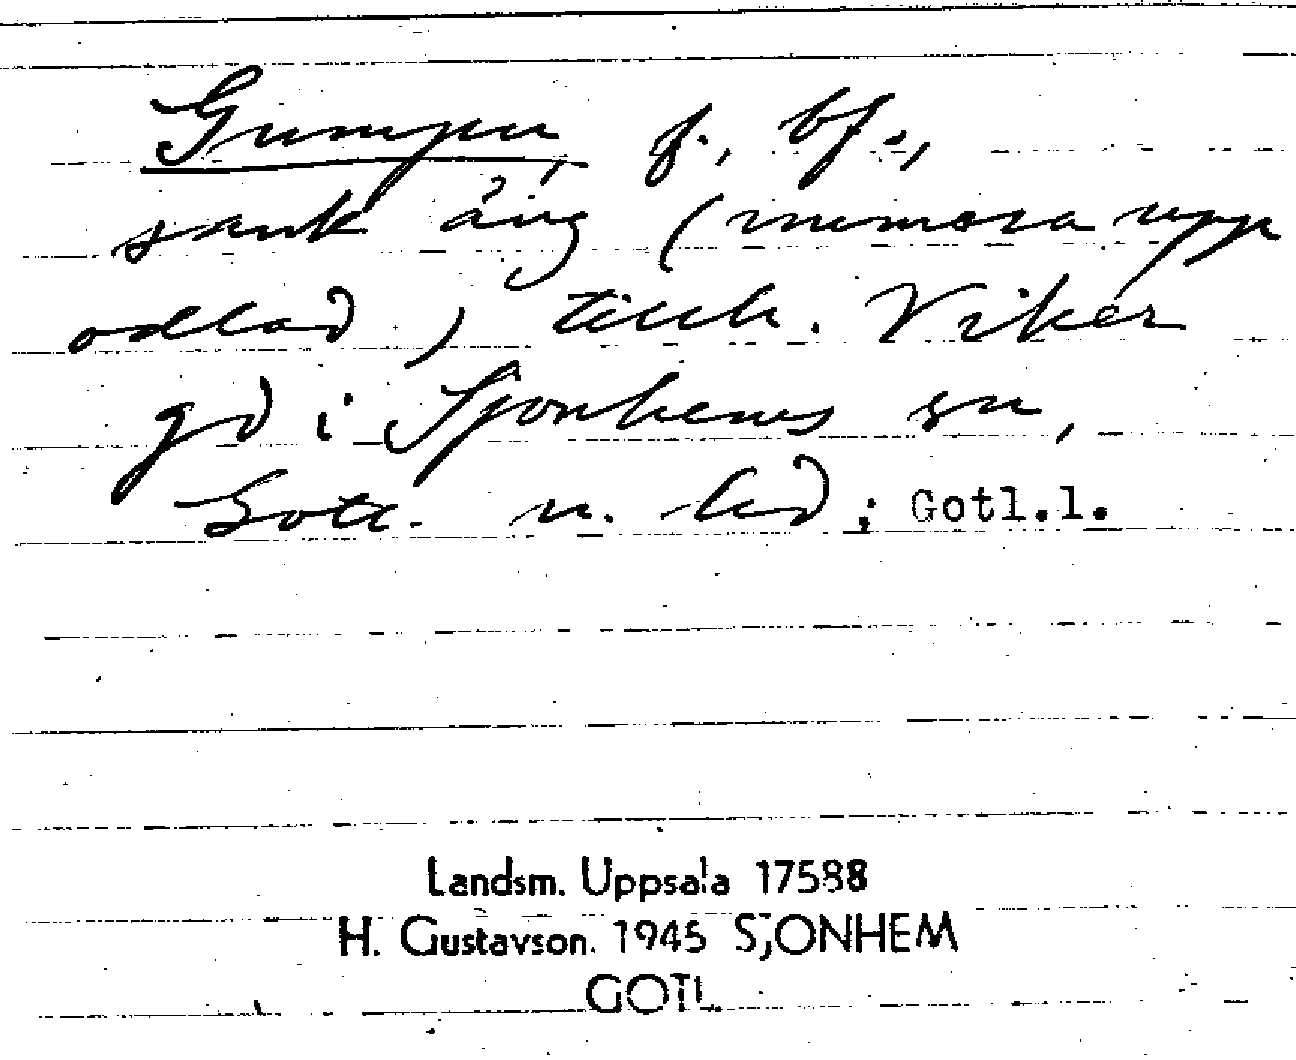 Gumpu, f., bf.,
sank äng (numera upp
odlad) tillh. Viker
gd i Sjonhems sn,
Gotl. n. hd; Gotl.l.
Landsm. Uppsala 17588
H. Gustavson. 1945 SJONHEM
GOTL.